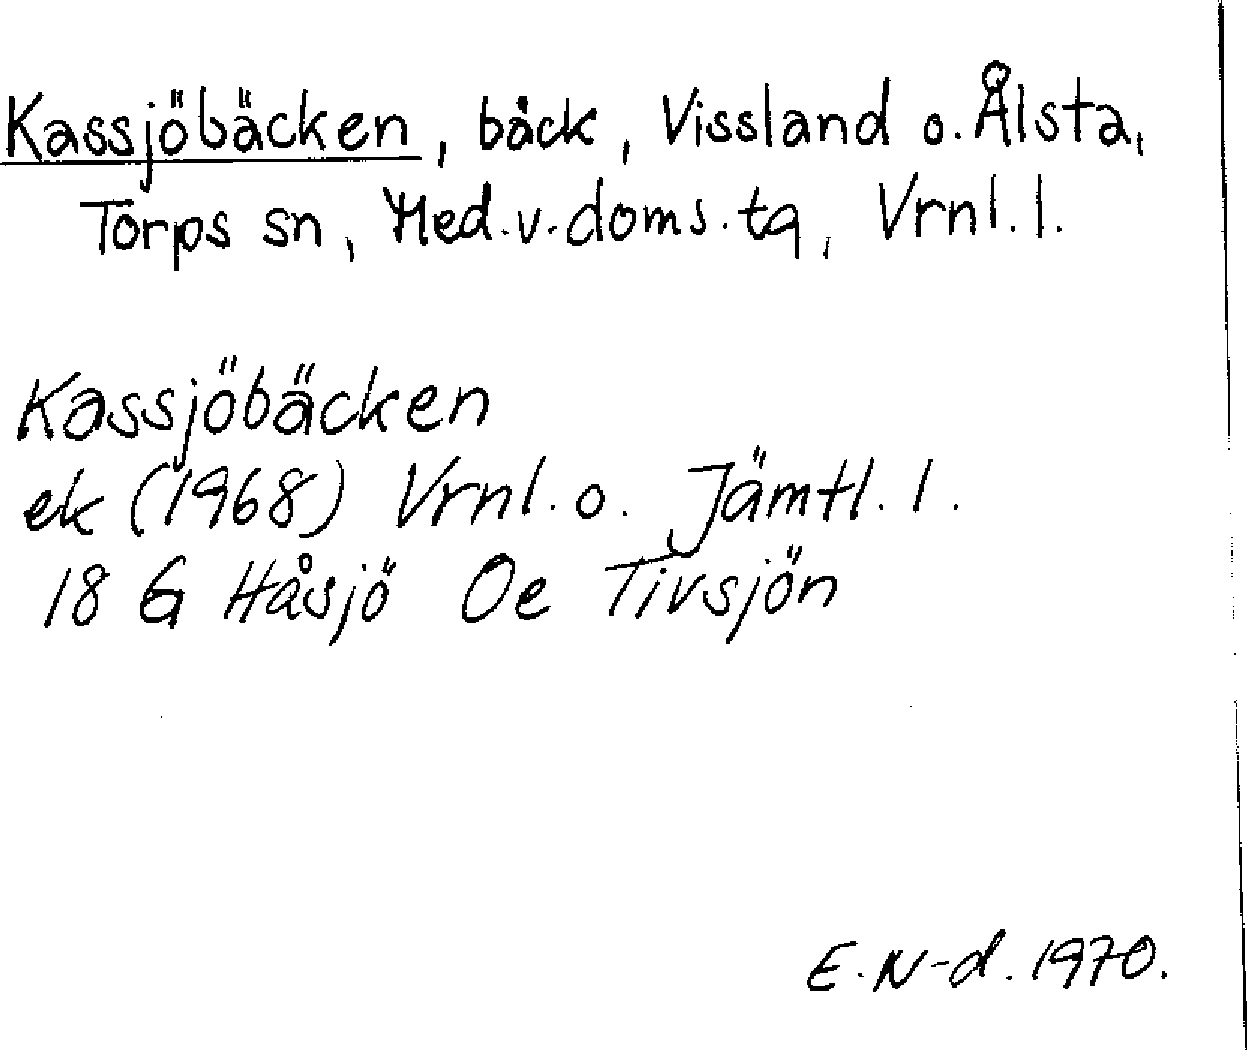 Kassjöbäcken, bäck, Vissland o. Ålsta,
Torps sn, Med.v.doms.tg, Vrnl.l.
Kassjöbäcken
ek (1968) Vrnl. o. Jämtl. l.
18 G Håsjö Oe Tivsjön
E.N-d. 1970.